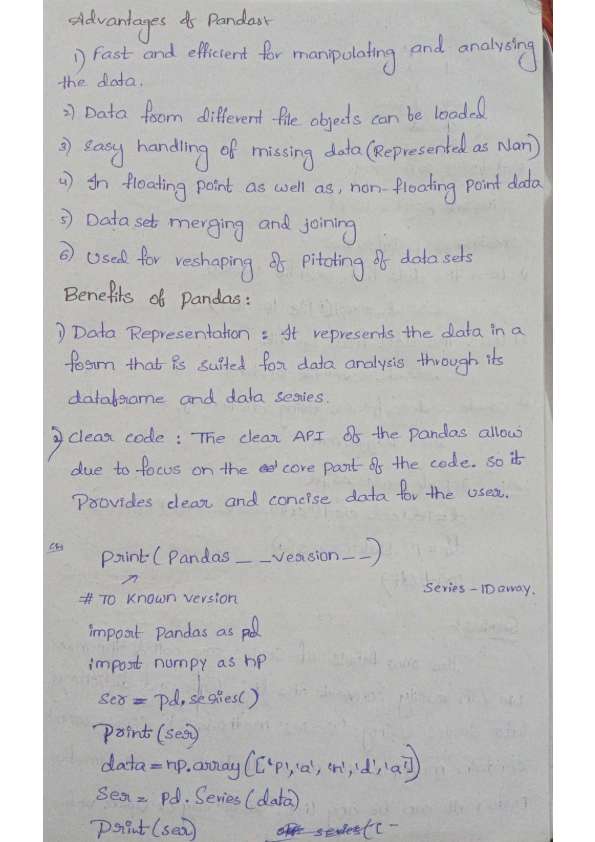 Advantages of Pandas:
1) Fast and efficient for manipulating and analysing
the data.
2) Data from different file objects can be loaded
3) Easy handling of missing data (Represented as Nan)
4) In floating point as well as, non-floating point data
5) Data set merging and joining
6) Used for reshaping of Pitoting of data sets
Benefits of Pandas:
1) Data Representation : It represents the data in a
form that is suited for data analysis through its
dataframe and data series.
2) clear code : The clear API of the pandas allow
due to focus on the core part of the code. so it
Provides clear and concise data for the user.
print(Pandas _ _version_ _)
# To Known version
Series - 1D array.
import Pandas as pd
import numpy as np
ser = pd.series()
Print(ser)
data = np.array(['P','a','n','d','a'])
Ser = pd.Series(data)
Print(ser)
series([